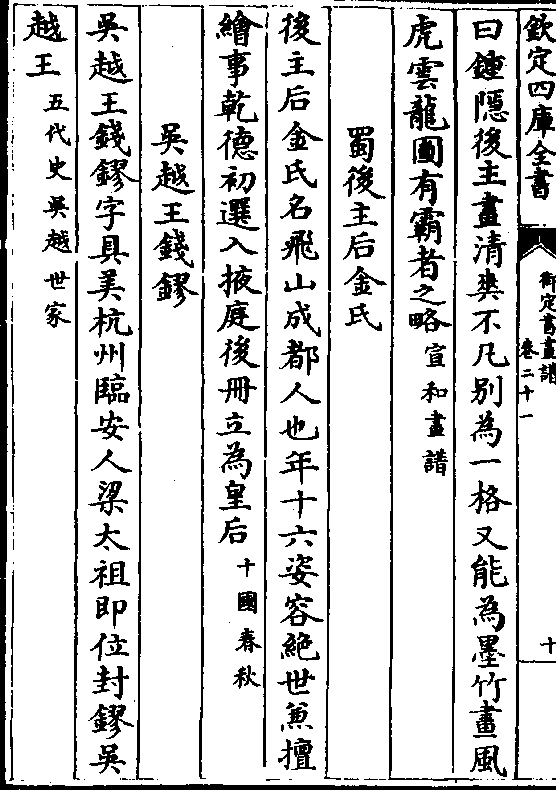 欽定四庫全書
御定書畫譜
卷二十一
十
曰鍾隱後主畫清爽不凡别為一格又能為墨竹畫風
虎雲龍圖有霸者之略宣和畫譜
蜀後主后金氏
後主后金氏名飛山成都人也年十六姿容絶世兼擅
繪事乾德初選入掖庭後冊立為皇后十國春秋
吳越王錢鏐
吳越王錢鏐字具美杭州臨安人梁太祖即位封鏐吳
越王五代史吳越世家